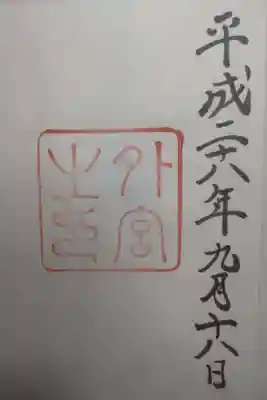 平成二十六年九月十八日
外宮
之印